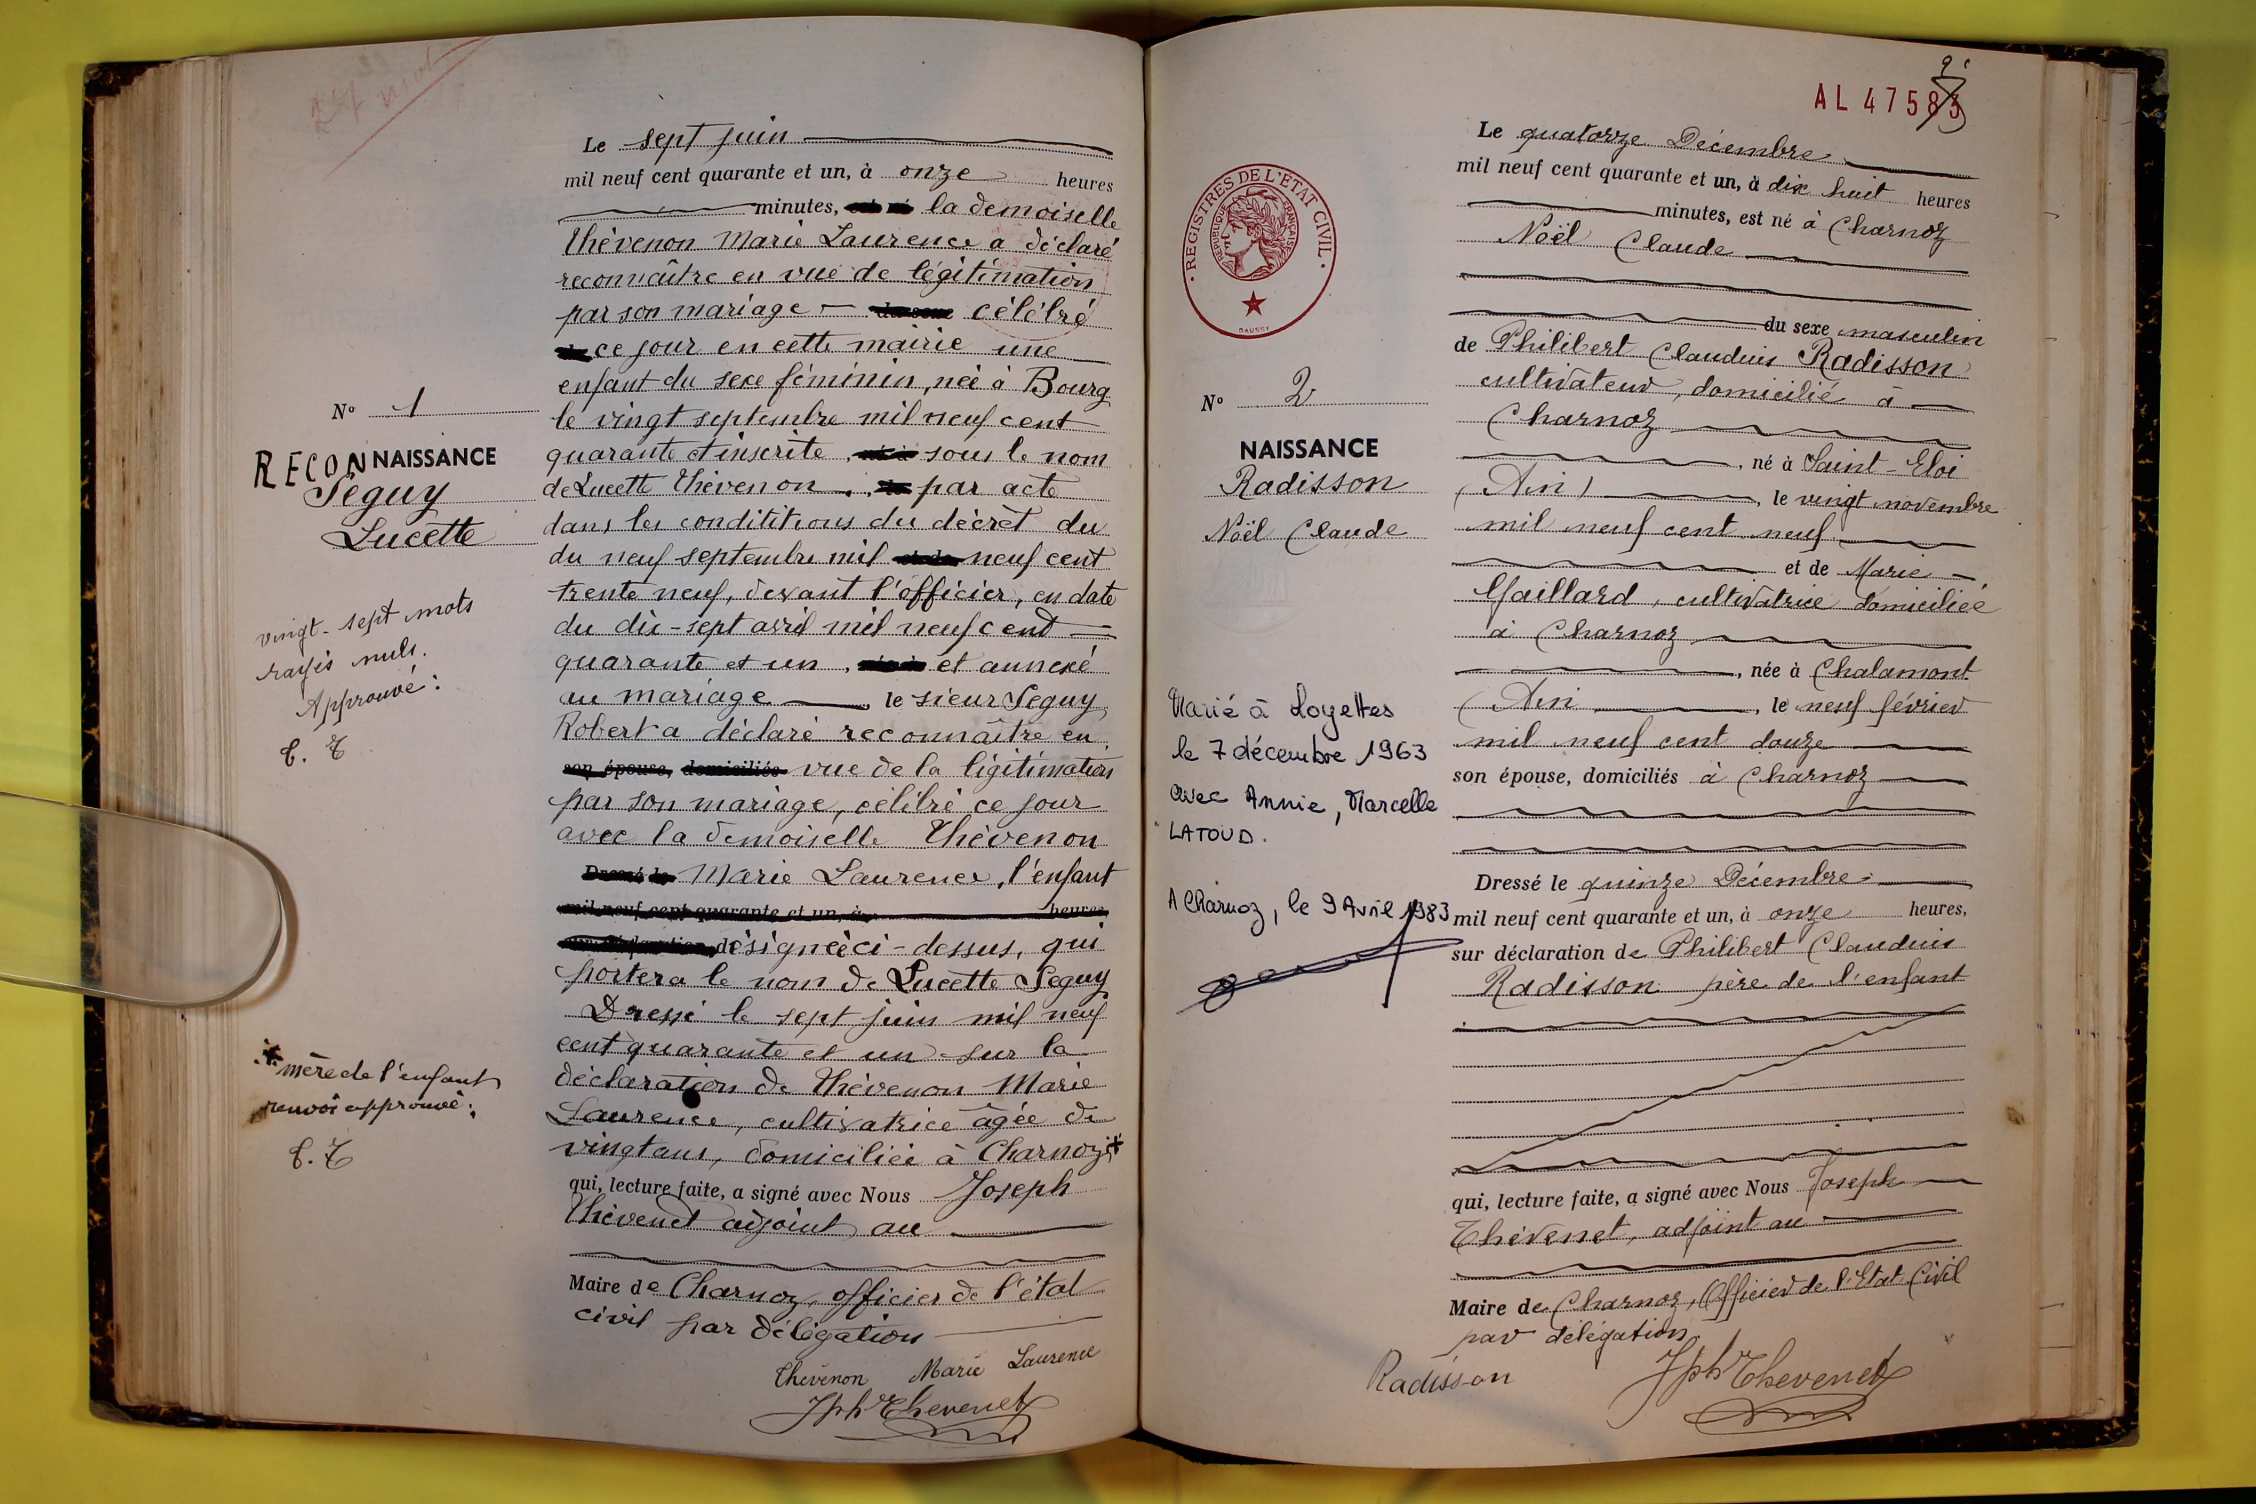 27 mot
Le sept juin
mil neuf cent quarante et un, à onze heures
minutes, la demoiselle
Thévenon Marie Laurence a déclaré
reconnaître en vue de légitimation
par son mariage célébré
ce jour en cette mairie une
enfant du sexe féminin, née à Bourg
le vingt septembre mil neuf cent
quarante et inscrite, sous le nom
de Lucette Thévenon, par acte
dans les condititions du décret du
du neuf septembre mil neuf cent
trente neuf, devant l'officier, en date
du dix-sept avril mil neuf cent
quarante et un, et annexé
au mariage le sieur Seguy
Robert a déclaré reconnaître en
son épouse, domiciliés vue de la légitimation
par son mariage, célébré ce jour
avec la demoiselle Thévenon
Dressé le Marie Laurence, l'enfant
mil neuf cent quarante et un, à heures
désignée ci-dessus, qui
portera le nom de Lucette Seguy
Dressé le sept juin mil neuf
cent quarante et un sur la
déclaration de Thévenon Marie
Laurence, cultivatrice âgée de
vingt ans, domiciliée à Charnoz *
qui, lecture faite, a signé avec Nous Joseph
Thévenet adjoint au
Maire de Charnoz, officier de l'état
civil par délégation
Thévenon Marie Laurence
Jph Thevenet
No 1
RECONNAISSANCE
Séguy
Lucette
vingt-sept mots
rayés nuls.
Approuvé :
J. T
* mère de l'enfant
renvoi approuvé :
J. T
AL 47583
REGISTRES DE L'ETAT CIVIL
REPUBLIQUE FRANÇAISE
DAUSSY
No 2
NAISSANCE
Radisson
Noël Claude
Marié à Loyettes
le 7 décembre 1963
avec Annie, Marcelle
LATOUD.
A Charnoz, le 9 Avril 1983
Le quatorze Décembre
mil neuf cent quarante et un, à dix huit heures
minutes, est né à Charnoz
Noël Claude
du sexe masculin
de Philibert Claudius Radisson
cultivateur, domicilié à
Charnoz
, né à Saint-Eloi
(Ain) , le vingt novembre
mil neuf cent neuf
et de Marie
Gaillard, cultivatrice domiciliée
à Charnoz
, née à Chalamont
(Ain , le neuf février
mil neuf cent douze
son épouse, domiciliés à Charnoz
Dressé le quinze Décembre
mil neuf cent quarante et un, à onze heures,
sur déclaration de Philibert Claudius
Radisson père de l'enfant
qui, lecture faite, a signé avec Nous Joseph
Thévenet, adjoint au
Maire de Charnoz, Officier de l'Etat Civil
par délégation
Radisson
Jph Thevenet